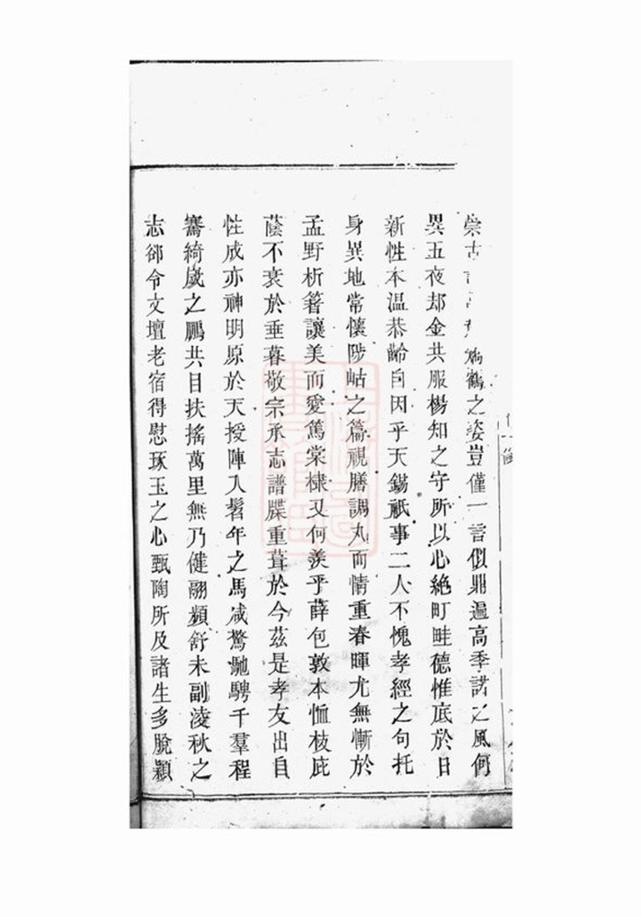 崇古鴻鶴之姿豈僅一言似鼎遍高季諾之風何
異五夜却金共服楊知之守所以心絶町畦德惟底於日
新性本温恭齡自因乎天錫祇事二人不愧孝經之句托
身異地常懷陟岵之篇視膳調丸而情重春暉尤無慚於
孟野析箸讓美而愛篤棠棣又何羡乎薛包敦本恤枝庇
蔭不衰於垂暮敬宗承志譜牒重葺於今茲是孝友出自
性成亦神明原於天授陣入髫年之馬咸驚馳騁千羣程
騫綺歲之鵬共目扶搖萬里無乃健翮頻舒未副凌秋之
志郤令文壇老宿得慰琢玉之心甄陶所及諸生多脫穎